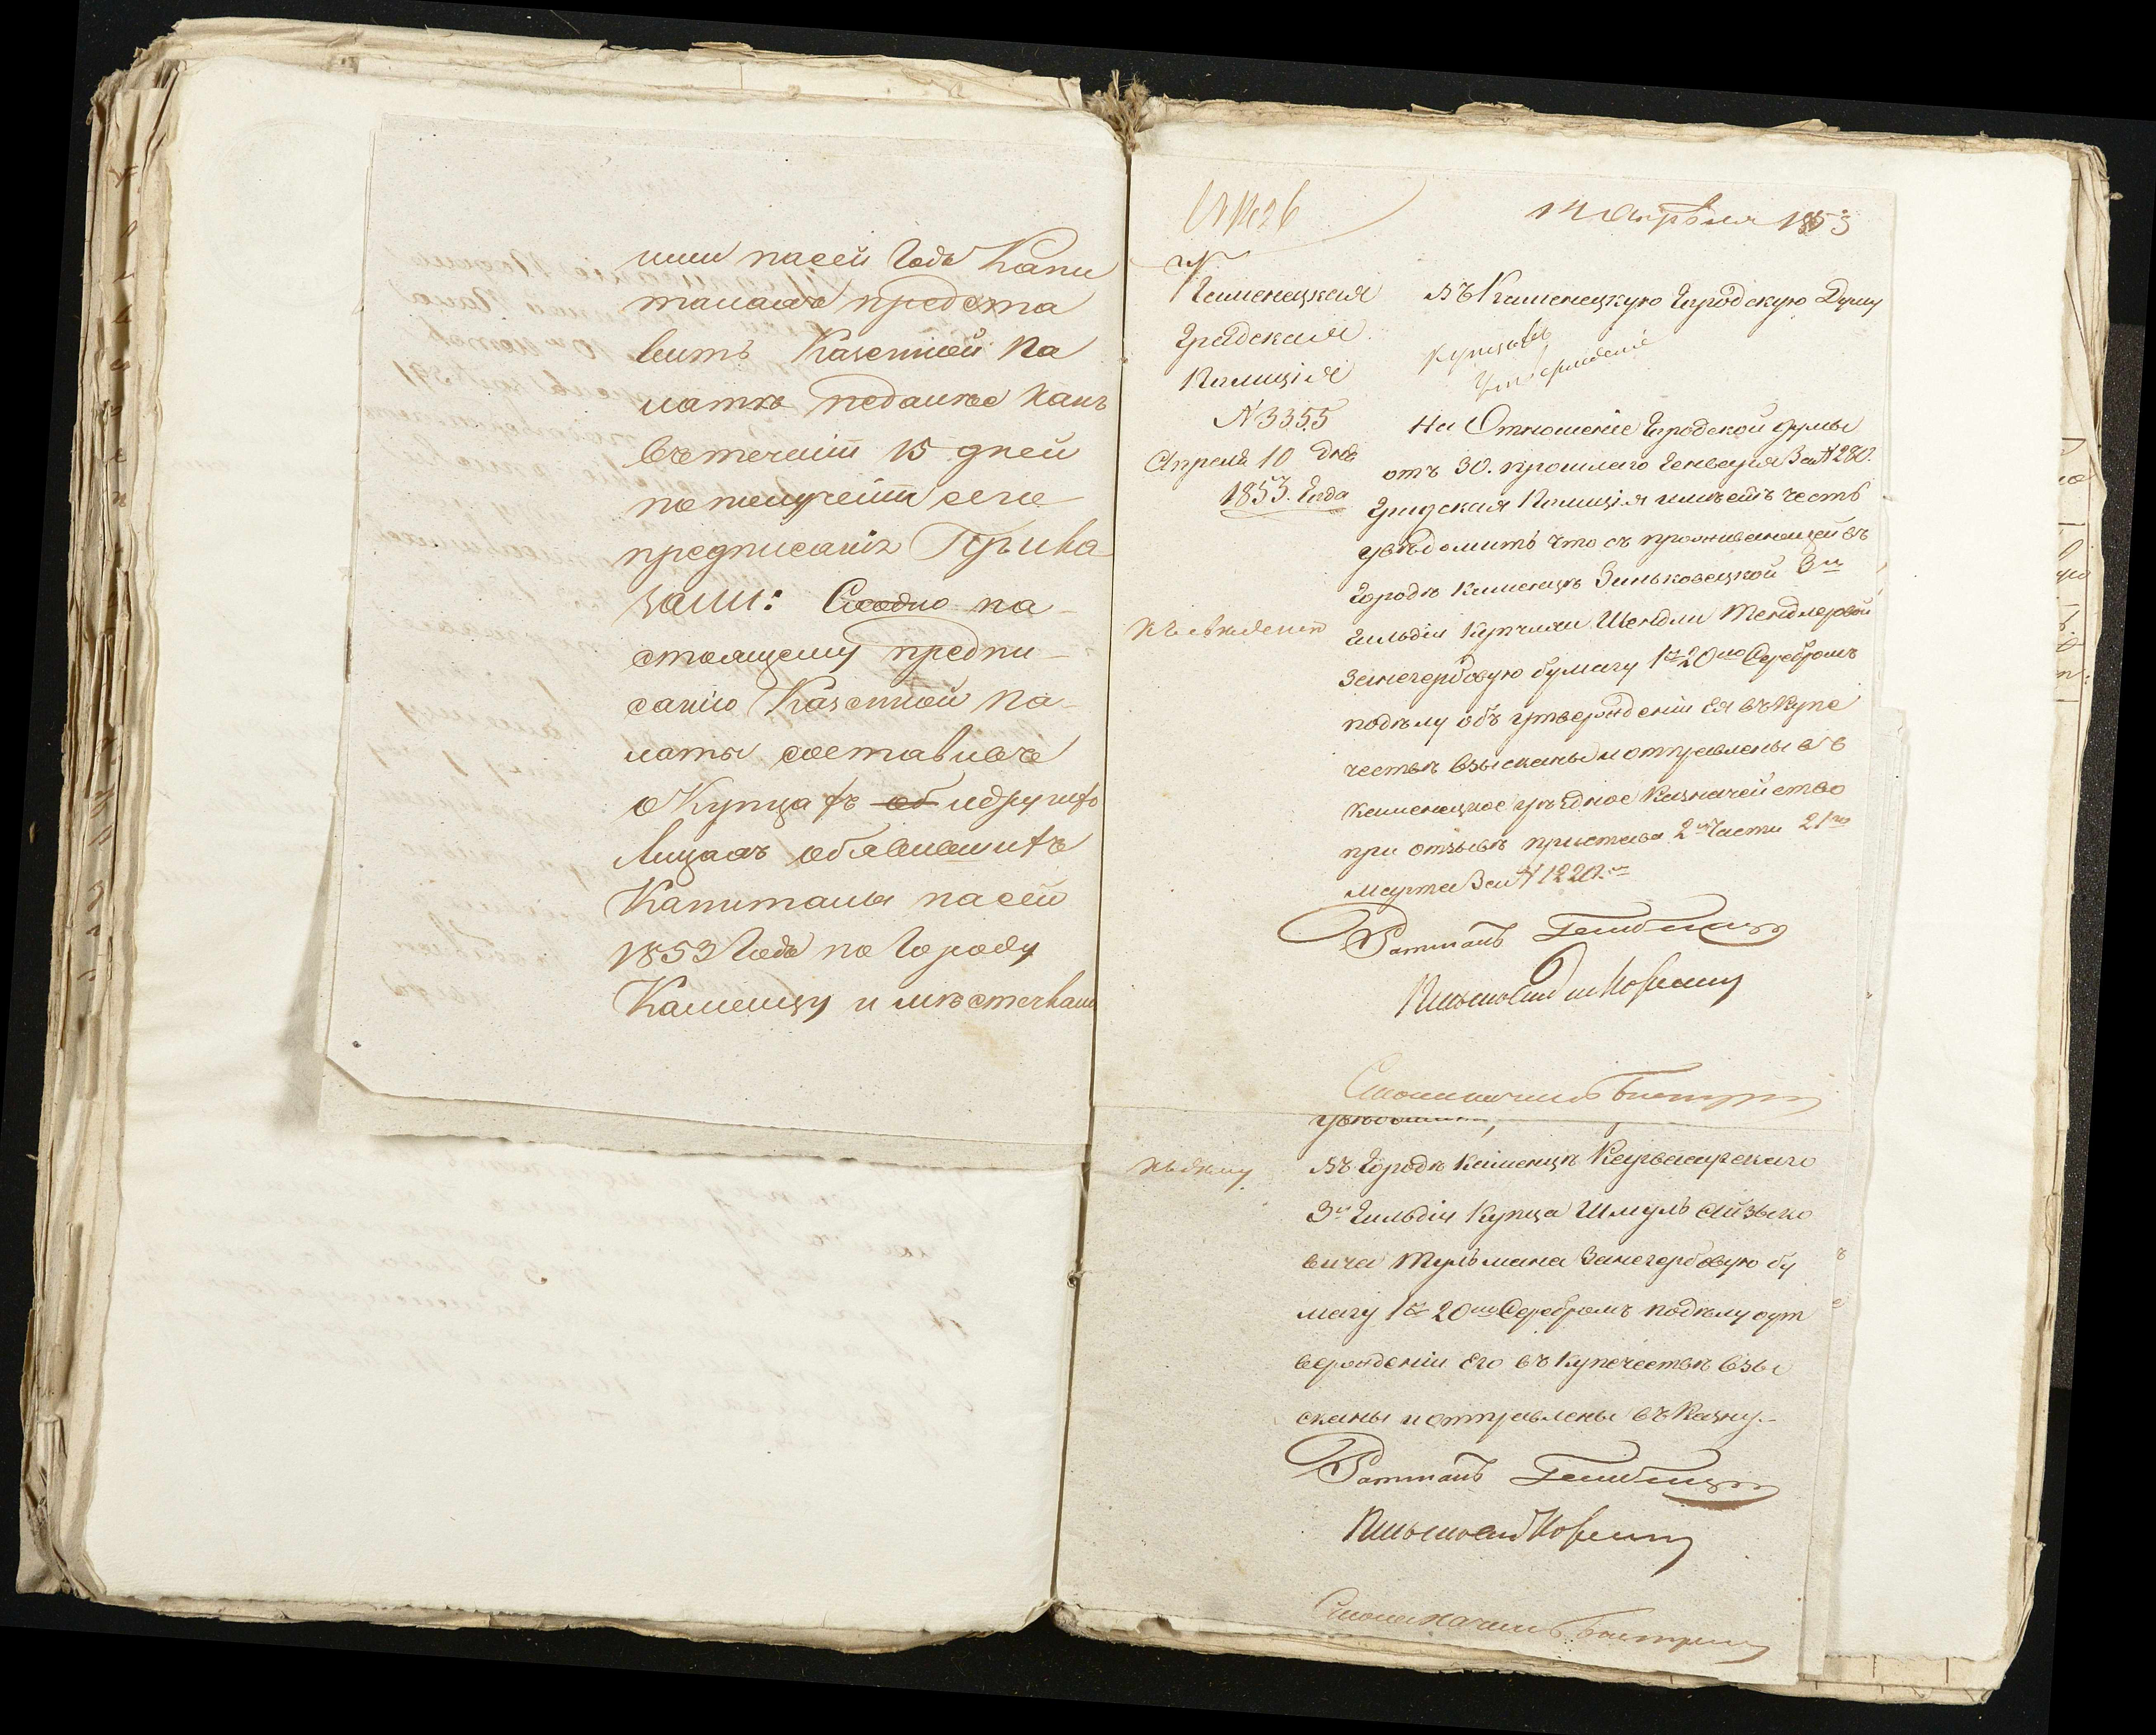 ими насей Годъ Капи
талахъ предста
вить Казенной Па
латѣ недалѣе какъ
втеченіи 15 дней
пополученіи сего
предписанія Прика
зали: Согласно на
стоящему предпи
санію Казенной Па
латы составивъ
о Купцахъ об идругихъ
Лицахъ обявившихъ
Капиталы насей
1853 Годъ по Городу
Каменцу и мѣстечкамъ
14 Апрѣля 1853
Каменецкая
Градская
Полиція
N 3355
Апреля 10 дня
1853. Года
ВъКаменецкую Городскую Думу
Купцовъ
Утверждение
На Отношеніе Городской думы
отъ 30. прошлаго Генваря За N 280.
Градская Полиція имѣетъ честь
увѣдомить что съ проживающей въ
Городѣ Каменцѣ Зиньковецкой 3й
Гильдіи Купчихи Шендли Тендлеровой
Занегербовую бумагу 1 р 20 ко Серебромъ
подѣлу объ утвержденіи Ея въ Купе
чествѣ взысканы и отправлены въ
Каменецкое уѣздное Казначейство
при отзывѣ пристава 2й Части 21го
марта За N 1220.
къ свѣденію
Ратманъ
Письмовод
увѣдомить,
Въ Городѣ Каменцѣ Жванецкаго
3й Гильдіи Купца Шмуль Айзико
вича Тульмана Занегербовую бу
магу 1 р 20 ко Серебромъ подѣлу оут
вержденіи Его въ купечествѣ взы
сканы и отправлены въ Казну.
къ дѣлу
Ратманъ
Письмовод
Столоначальн